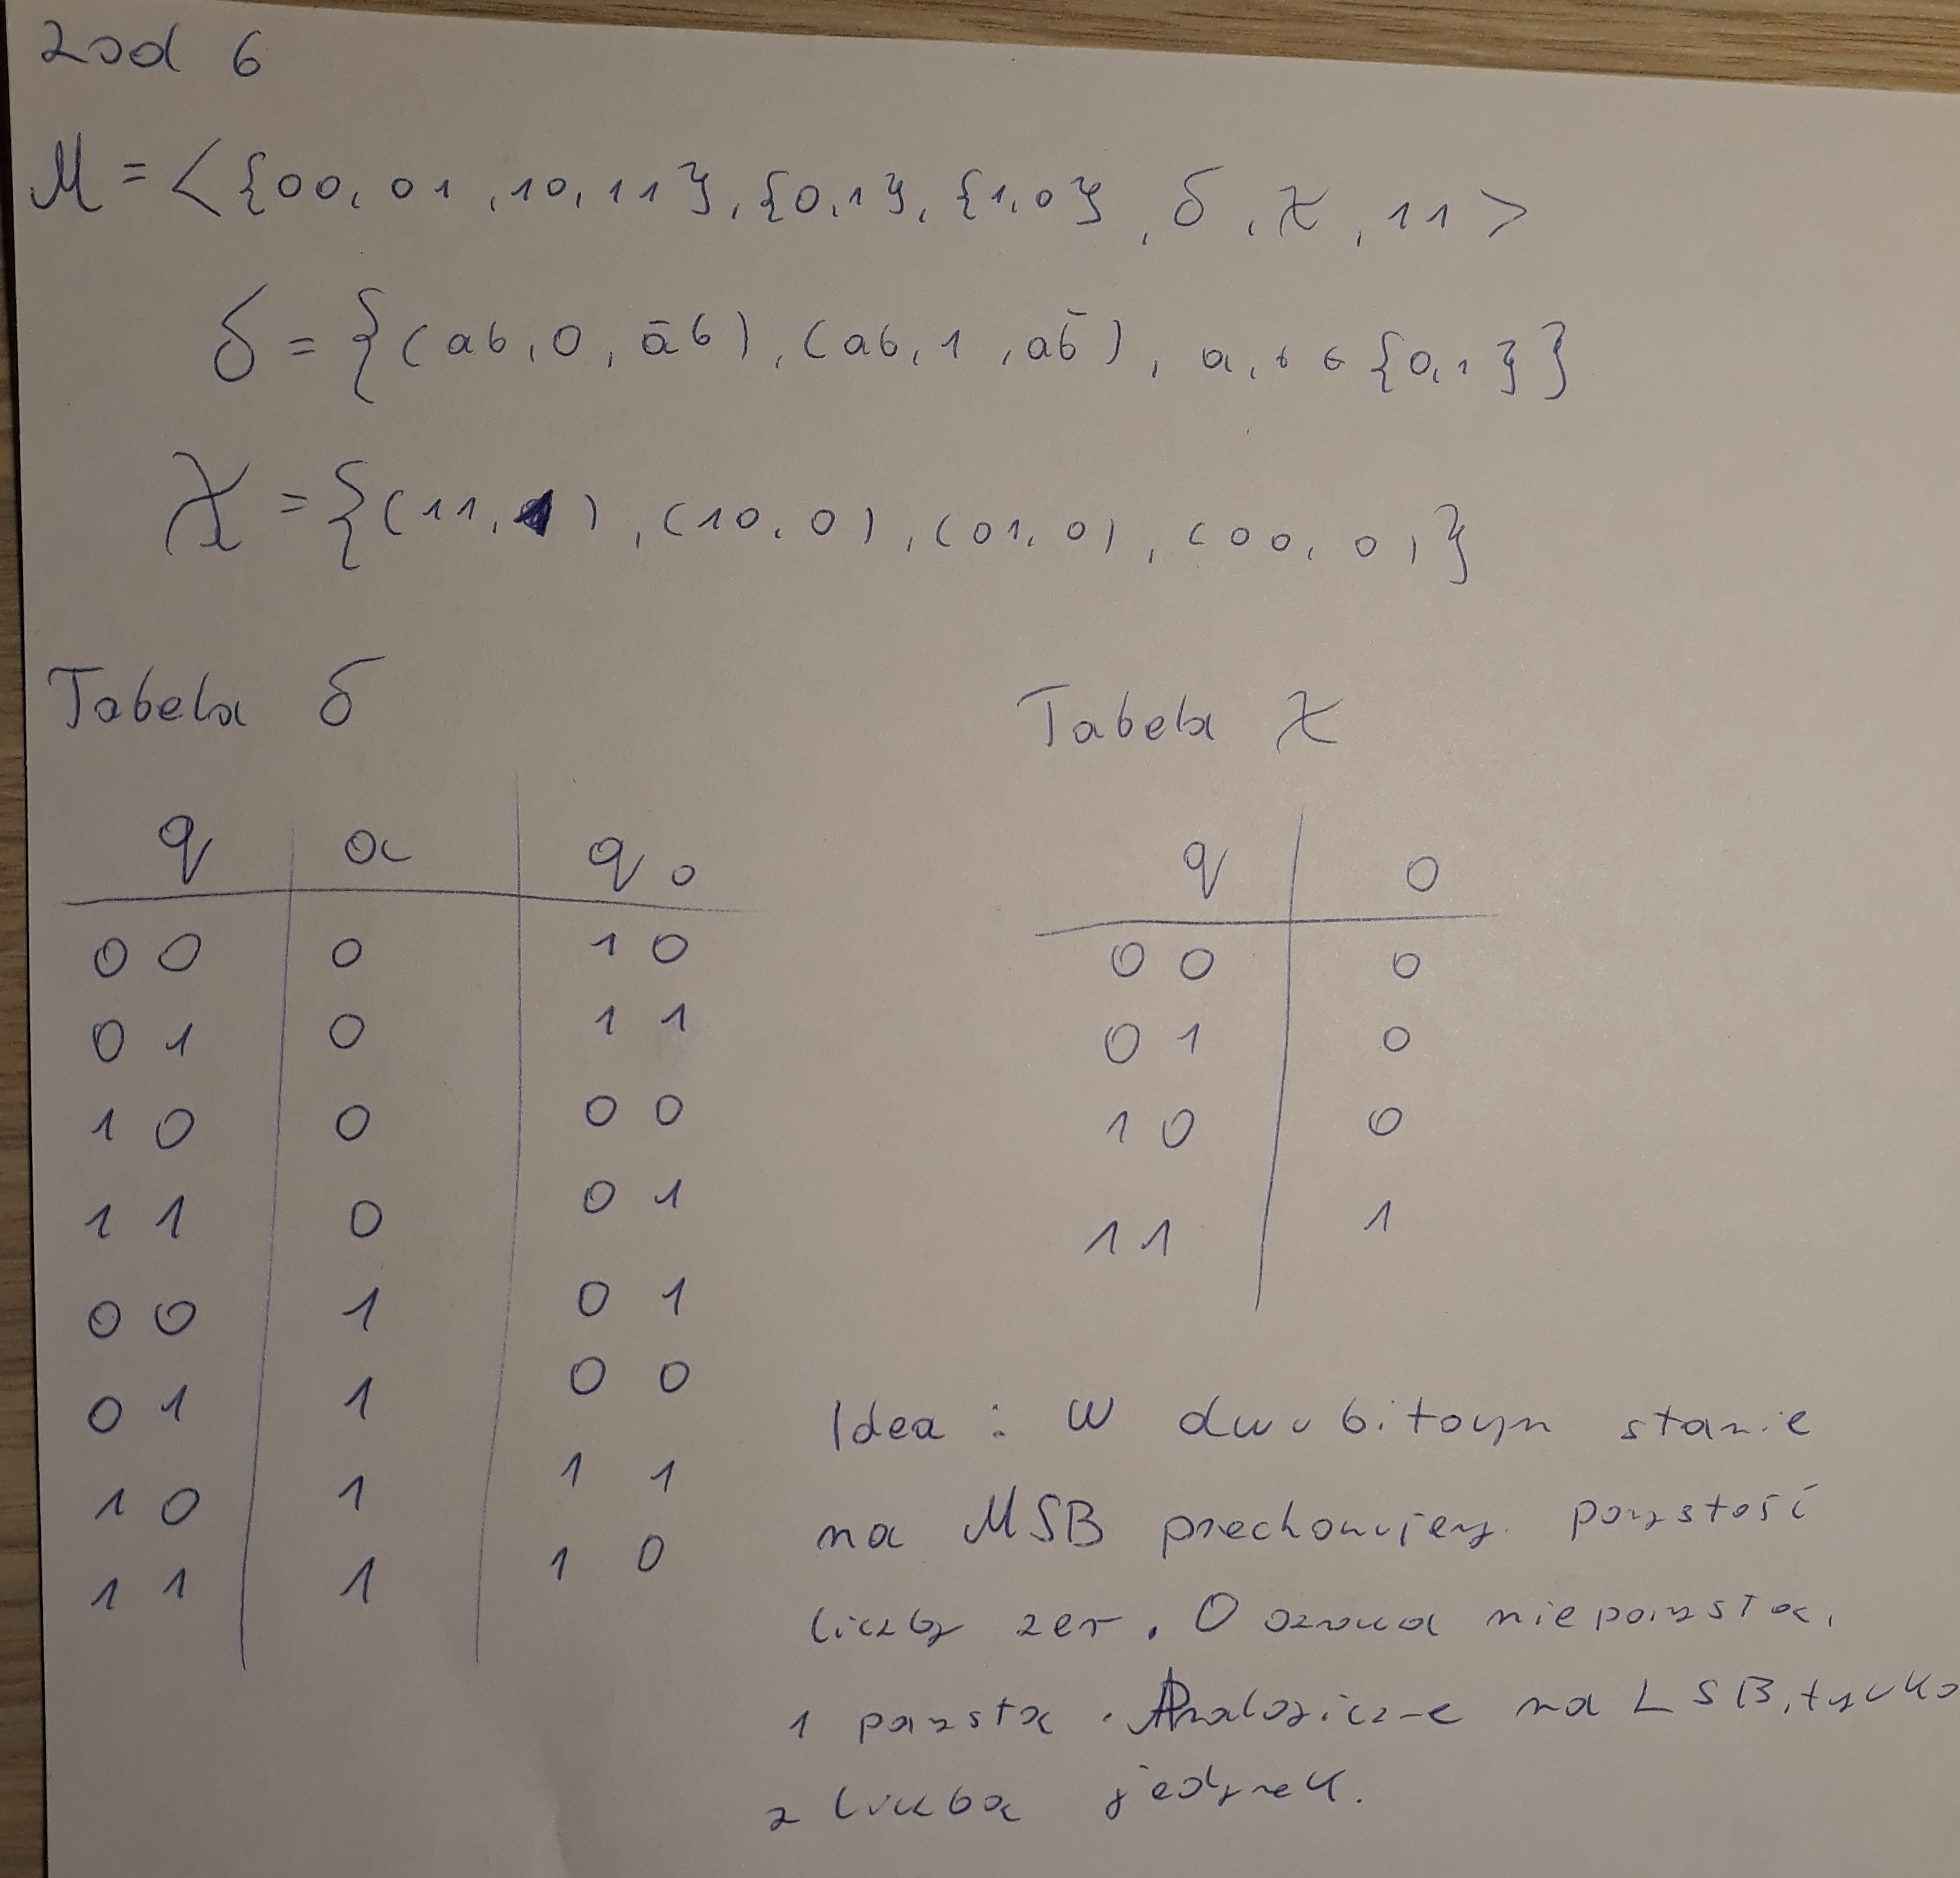 Zad 6
M = <{00, 01, 10, 11}, {0,1}, {1,0}, δ, λ, 11>
δ = {(ab, 0, āb), (ab, 1, ab̄), a, b ∈ {0,1}}
λ = {(11, 1), (10, 0), (01, 0), (00, 0)}
Tabela δ
q a q₀
00 0 10
01 0 11
10 0 00
11 0 01
00 1 01
01 1 00
10 1 11
11 1 10
Tabela λ
q 0
00 0
01 0
10 0
11 1
Idea : W dwubitoym stanie
na MSB przechowujemy parzstość
liczby zer. 0 oznacza nieparzsta,
1 parzsta. Analogicznie na LSB, tylko
z liczba jedynek.